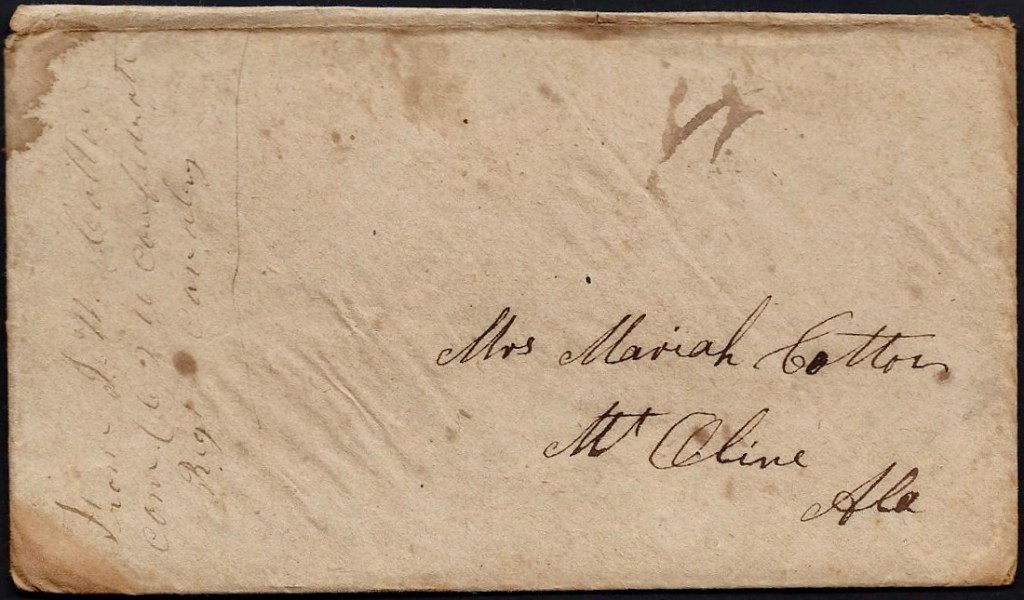 Mrs Mariah Cotton
Mt Oline
Ala
From J. W. Cotton
com C 10 confederate
Regt cavalry